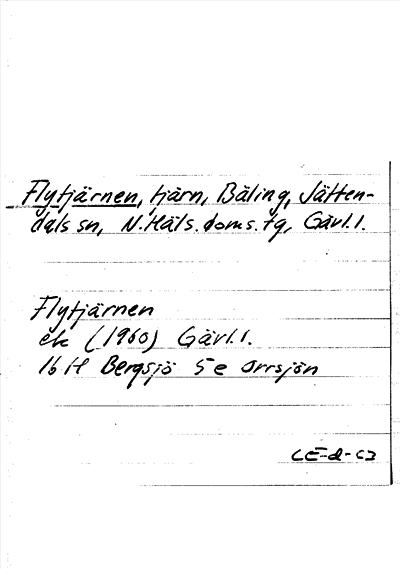 Flytjärnen, tjärn, Bäling, Jätten-
dals sn, N. Häls. doms.tg, Gävl.l.
Flytjärnen
ek (1960) Gävl.l.
16 H Bergsjö 5e Orrsjön